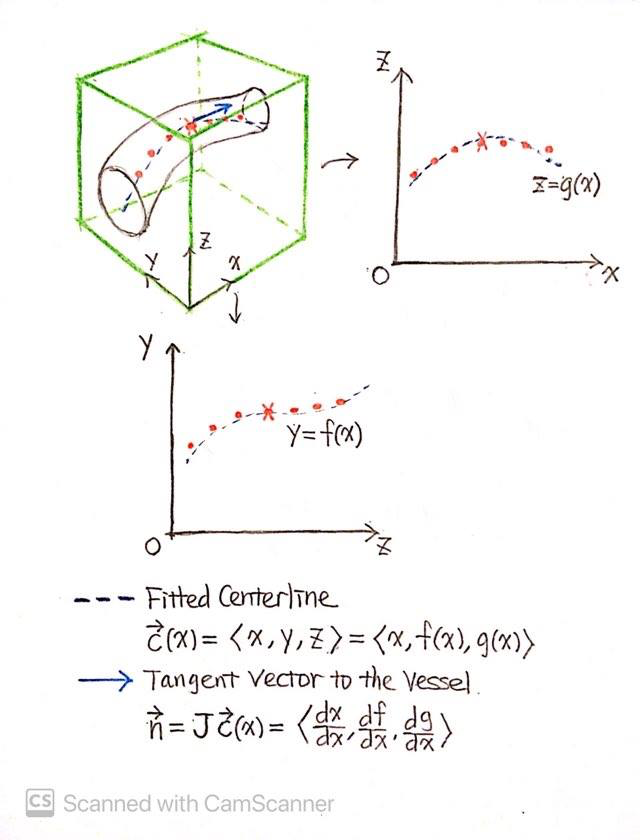 Z
Z=g(x)
O
x
Y
Z
x
Y
y=f(x)
O
Z
Fitted Centerline
c⃗(x)= ⟨x, y, z⟩=⟨x, f(x), g(x)⟩
Tangent Vector to the Vessel.
n⃗ = Jc⃗(x)= ⟨dx/dx, df/dx, dg/dx⟩
CS Scanned with CamScanner